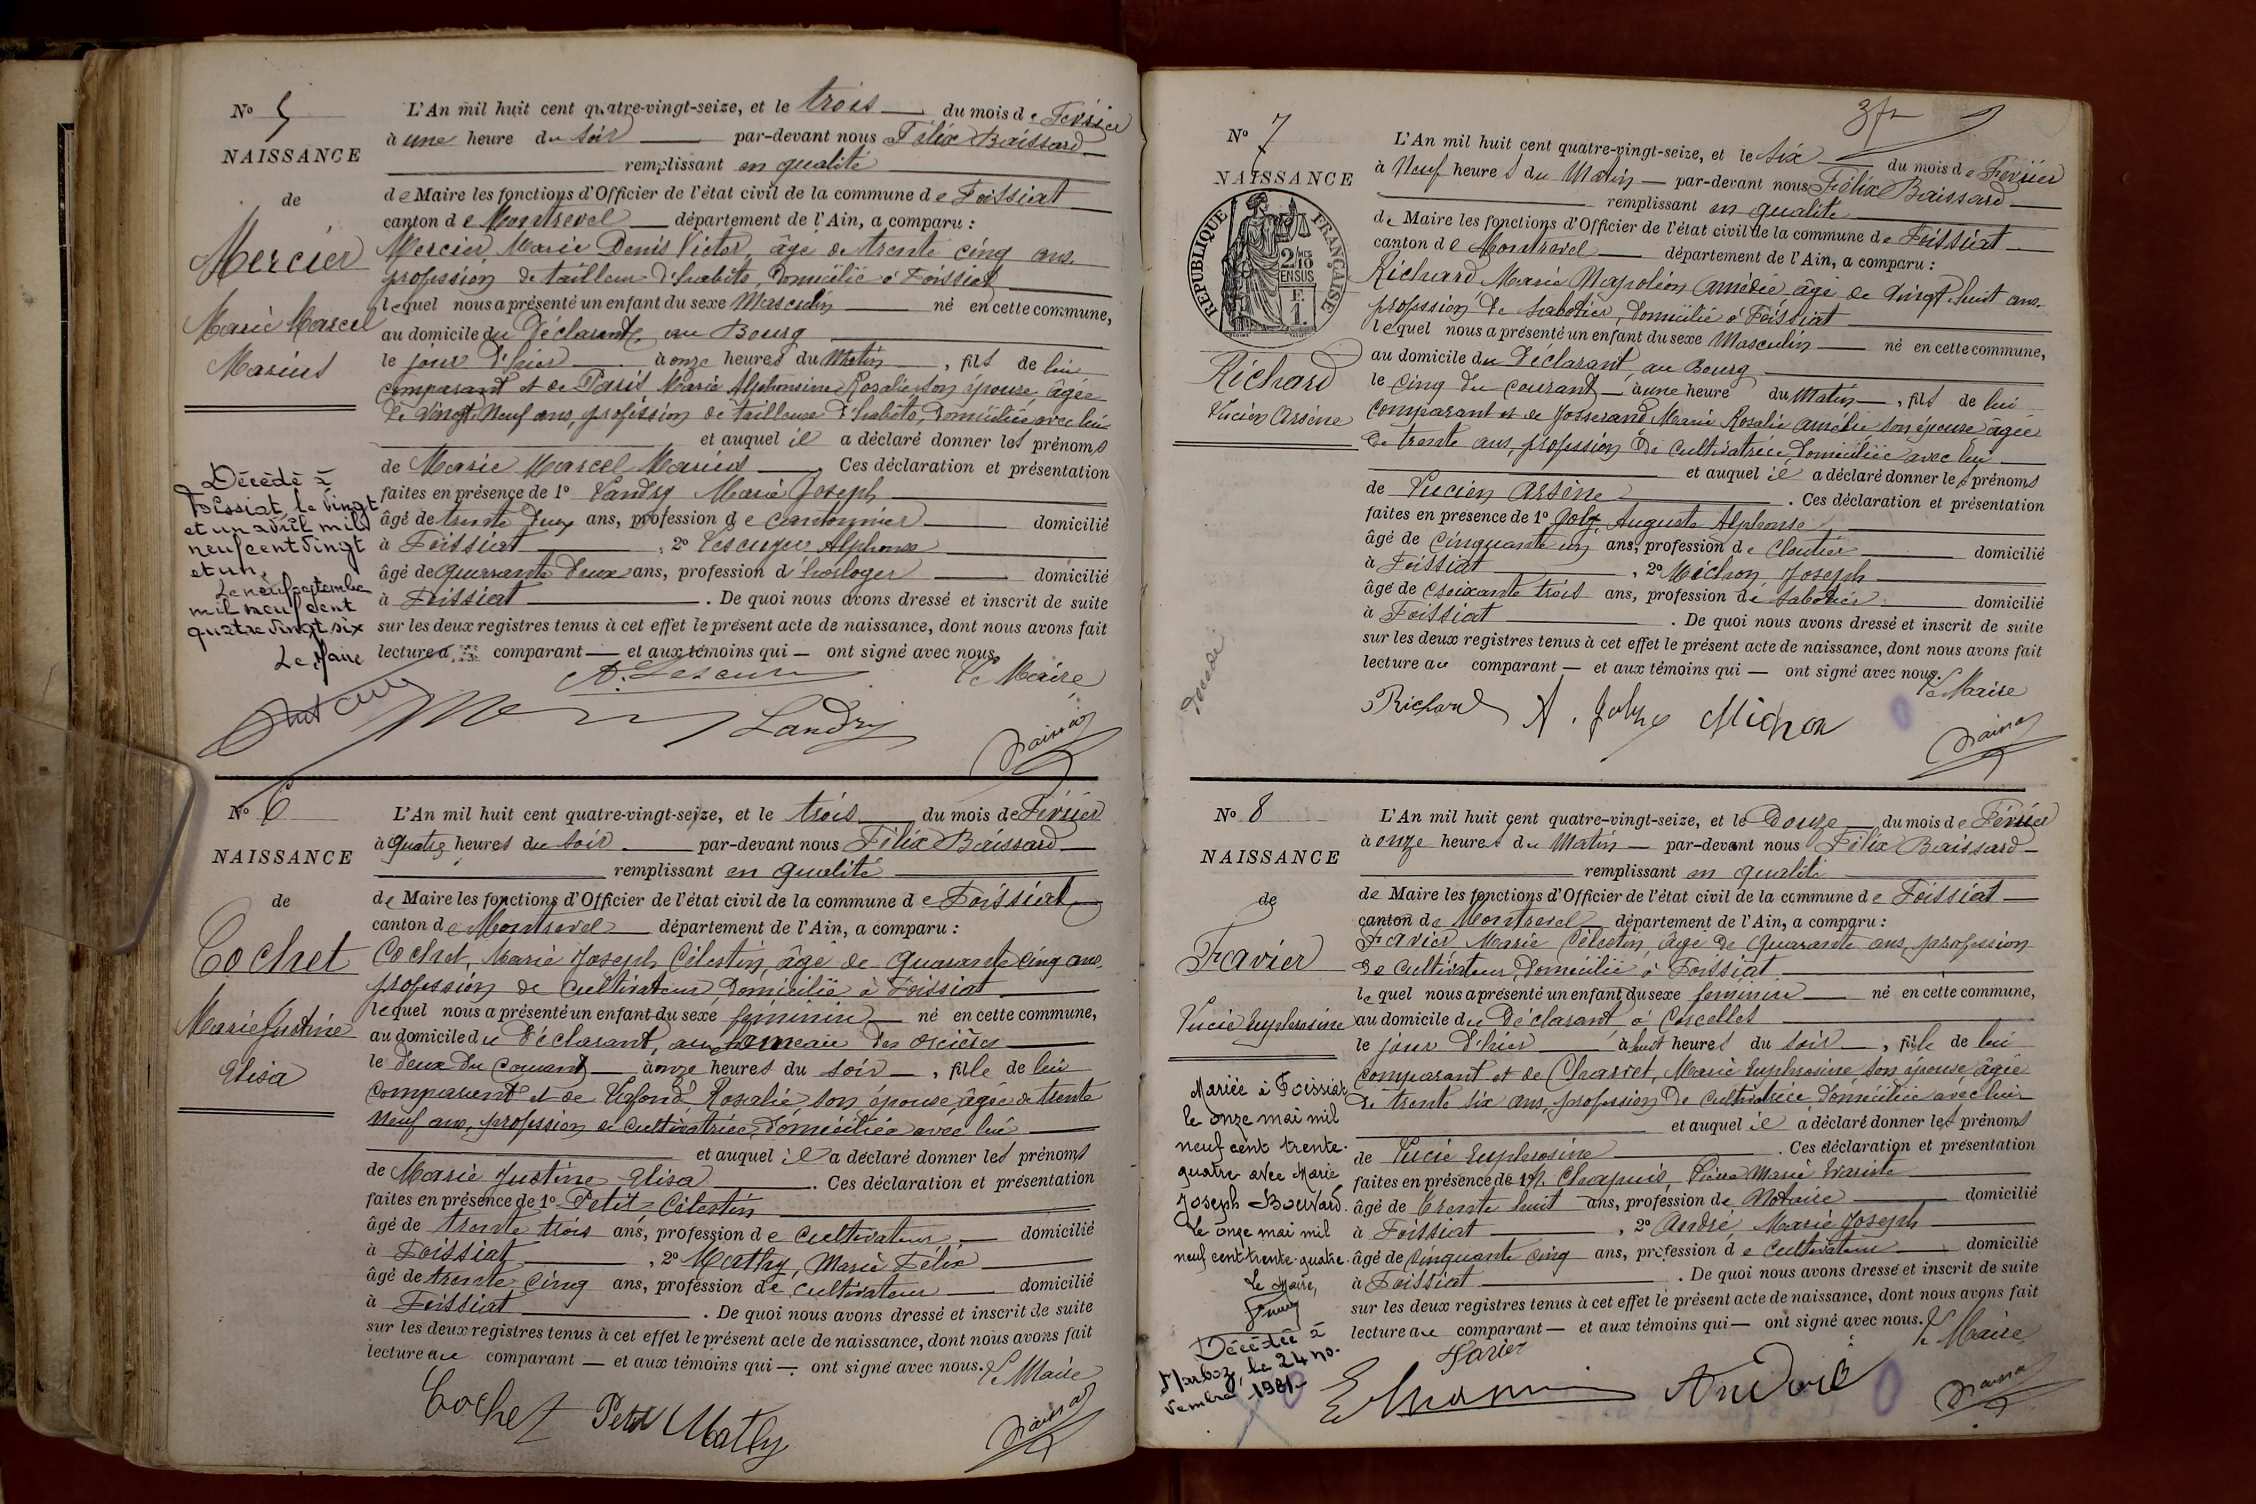 No 5
NAISSANCE
de
Mercier
Marie Marcel
Marius
L'An mil huit cent quatre-vingt-seize, et le trois du mois de Février
à une heure du soir par-devant nous Félix Baissard
remplissant en qualité
de Maire les fonctions d'Officier de l'état civil de la commune de Foissiat
canton de Montrevel département de l'Ain, a comparu :
Mercier Marie Denis Victor, âgé de trente cinq ans
profession de tailleur d'habits, domicilié à Foissiat
lequel nous a présenté un enfant du sexe Masculin né en cette commune,
au domicile du Déclarant, au Bourg
le jour d'hier à onze heures du Matin, fils de lui
comparant et de Paris Marie Alphonsine Rosalie son épouse, âgée
de vingt neuf ans, profession de tailleuse d'habits, domiciliée avec lui
et auquel il a déclaré donner les prénoms
de Marie Marcel Marius. Ces déclaration et présentation
faites en présence de 1º Landry Marie Joseph
âgé de trente deux ans, profession de cantonnier domicilié
à Foissiat, 2º Lescuyer Alphonse
âgé de quarante deux ans, profession d'horloger domicilié
à Foissiat. De quoi nous avons dressé et inscrit de suite
sur les deux registres tenus à cet effet le présent acte de naissance, dont nous avons fait
lecture au comparant et aux témoins qui ont signé avec nous.
Le Maire
Landry
Décédé à
Foissiat, le vingt
et un avril mil
neuf cent vingt
et un.
Le neuf septembre
mil neuf cent
quatre vingt six
Le Maire
No 6
NAISSANCE
de
Cochet
Marie Justine
Elisa
L'An mil huit cent quatre-vingt-seize, et le trois du mois de Février
à quatre heures du soir par-devant nous Félix Baissard
remplissant en qualité
de Maire les fonctions d'Officier de l'état civil de la commune de Foissiat
canton de Montrevel département de l'Ain, a comparu :
Cochet, Marie Joseph Célestin, âgé de quarante cinq ans,
profession de cultivateur, domicilié à Foissiat
lequel nous a présenté un enfant du sexe féminin né en cette commune,
au domicile du Déclarant, au hameau des
le deux du courant à onze heures du soir, fille de lui
comparant et de Rosalie son épouse, âgée de trente
neuf ans, profession de cultivatrice, domiciliée avec lui
et auquel il a déclaré donner les prénoms
de Marie Justine Elisa. Ces déclaration et présentation
faites en présence de 1º Petit Célestin
âgé de trente trois ans, profession de cultivateur domicilié
à Foissiat, 2º Mathy, Marie Félix
âgé de trente cinq ans, profession de cultivateur domicilié
à Foissiat. De quoi nous avons dressé et inscrit de suite
sur les deux registres tenus à cet effet le présent acte de naissance, dont nous avons fait
lecture au comparant et aux témoins qui ont signé avec nous. Le Maire
Cochet Petit Mathy
No 7
NAISSANCE
RÉPUBLIQUE FRANÇAISE
2/10 EN SUS
Richard
Lucien Arsène
L'An mil huit cent quatre-vingt-seize, et le six du mois de Février
à Neuf heures du Matin par-devant nous Félix Baissard
remplissant en qualité
de Maire les fonctions d'Officier de l'état civil de la commune de Foissiat
canton de Montrevel département de l'Ain, a comparu :
Richard Marie Napoléon Amédée âgé de vingt huit ans
profession de sabotier, domicilié à Foissiat
lequel nous a présenté un enfant du sexe Masculin né en cette commune,
au domicile du Déclarant, au Bourg
le cinq du courant à une heure du Matin, fils de lui
comparant et de Josserand Marie Rosalie Amélie son épouse âgée
de trente ans, profession de cultivatrice domiciliée avec lui
et auquel il a déclaré donner les prénoms
de Lucien Arsène. Ces déclaration et présentation
faites en présence de 1º Auguste Alphonse
âgé de cinquante un ans, profession de cloutier domicilié
à Foissiat, 2º Michon Joseph
âgé de soixante trois ans, profession de sabotier domicilié
à Foissiat. De quoi nous avons dressé et inscrit de suite
sur les deux registres tenus à cet effet le présent acte de naissance, dont nous avons fait
lecture au comparant et aux témoins qui ont signé avec nous.
Le Maire
Richard Michon
No 8
NAISSANCE
de
Favier
Lucie Euphrosine
L'An mil huit cent quatre-vingt-seize, et le Douze du mois de Février
à onze heures du Matin par-devant nous Félix Baissard
remplissant en qualité
de Maire les fonctions d'Officier de l'état civil de la commune de Foissiat
canton de Montrevel département de l'Ain, a comparu :
Favier Marie Célestin, âgé de quarante ans, profession
de cultivateur, domicilié à Foissiat
lequel nous a présenté un enfant du sexe féminin né en cette commune,
au domicile du Déclarant à Corcelles
le jour d'hier à huit heures du soir, fille de lui
comparant et de Charret, Marie Euphrosine son épouse âgée
de trente six ans, profession de cultivatrice domiciliée avec lui
et auquel il a déclaré donner les prénoms
de Lucie Euphrosine. Ces déclaration et présentation
faites en présence de 1º Chapuis, Pierre Marie Evariste
âgé de trente huit ans, profession de Notaire domicilié
à Foissiat, 2º André, Marie Joseph
âgé de cinquante cinq ans, profession de cultivateur domicilié
à Foissiat. De quoi nous avons dressé et inscrit de suite
sur les deux registres tenus à cet effet le présent acte de naissance, dont nous avons fait
lecture au comparant et aux témoins qui ont signé avec nous. Le Maire
Favier
André
Mariée à Foissiat
le onze mai mil
neuf cent trente-
quatre avec Marie
Joseph Bouvard.
Le onze mai mil
neuf cent trente-quatre
Le Maire,
Décédée à
Marboz, le 24 no-
vembre 1981